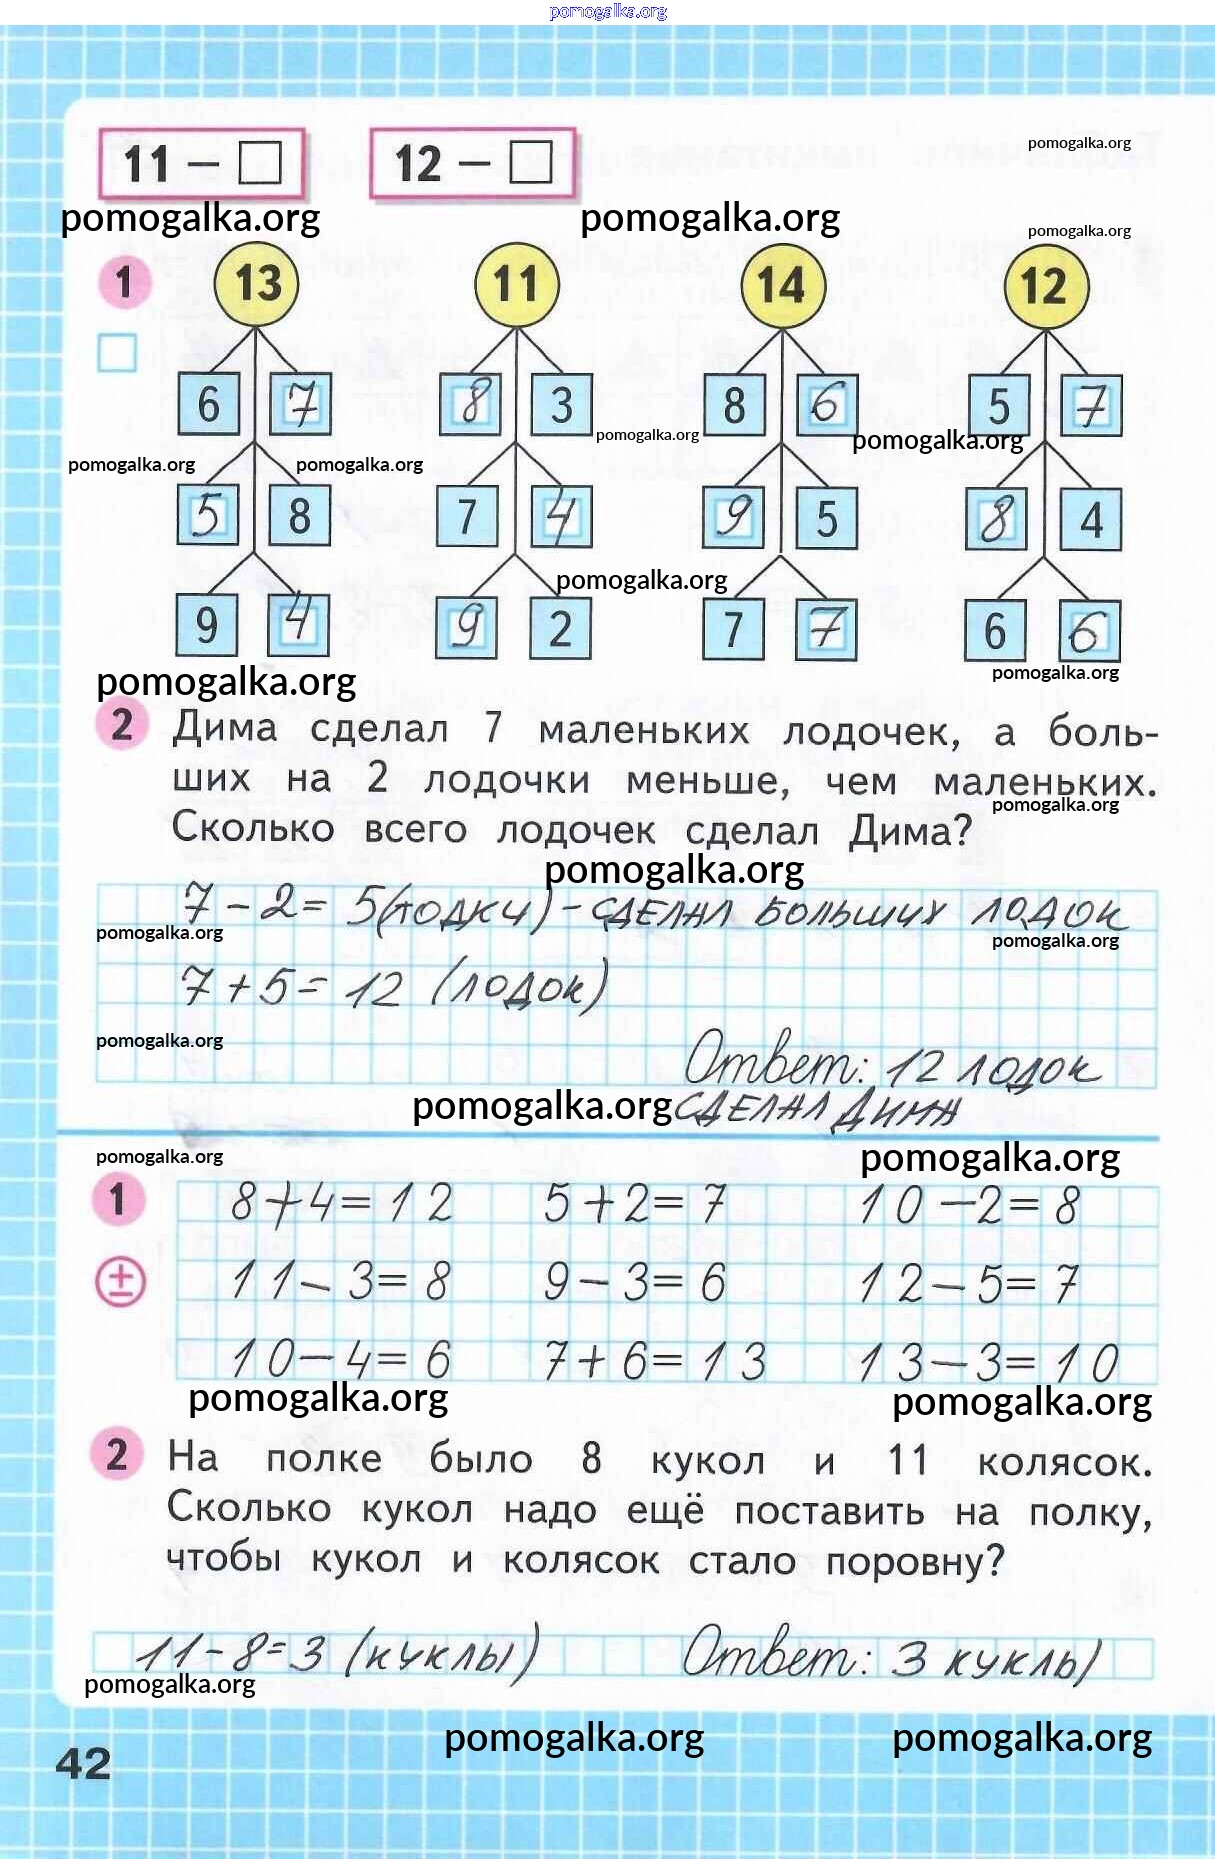 pomogalka.org
11 − □ 12 − □
pomogalka.org
pomogalka.org pomogalka.org
pomogalka.org
1 13 11 14 12
6 7 8 3 8 6 5 7
pomogalka.org pomogalka.org
pomogalka.org pomogalka.org
5 8 7 4 9 5 8 4
pomogalka.org
9 4 9 2 7 7 6 6
pomogalka.org pomogalka.org
2 Дима сделал 7 маленьких лодочек, а боль-
ших на 2 лодочки меньше, чем маленьких.
pomogalka.org
Сколько всего лодочек сделал Дима?
pomogalka.org
7 − 2 = 5 (лодки) - СДЕЛАЛ БОЛЬШИХ ЛОДОК
pomogalka.org pomogalka.org
7 + 5 = 12 (лодок)
pomogalka.org
Ответ: 12 лодок
pomogalka.org СДЕЛАЛ ДИМА
pomogalka.org pomogalka.org
1 8+4=12 5+2=7 10−2=8
± 11−3=8 9−3=6 12−5=7
10−4=6 7+6=13 13−3=10
pomogalka.org pomogalka.org
2 На полке было 8 кукол и 11 колясок.
Сколько кукол надо ещё поставить на полку,
чтобы кукол и колясок стало поровну?
11-8=3 (куклы) Ответ: 3 куклы
pomogalka.org
pomogalka.org pomogalka.org
42